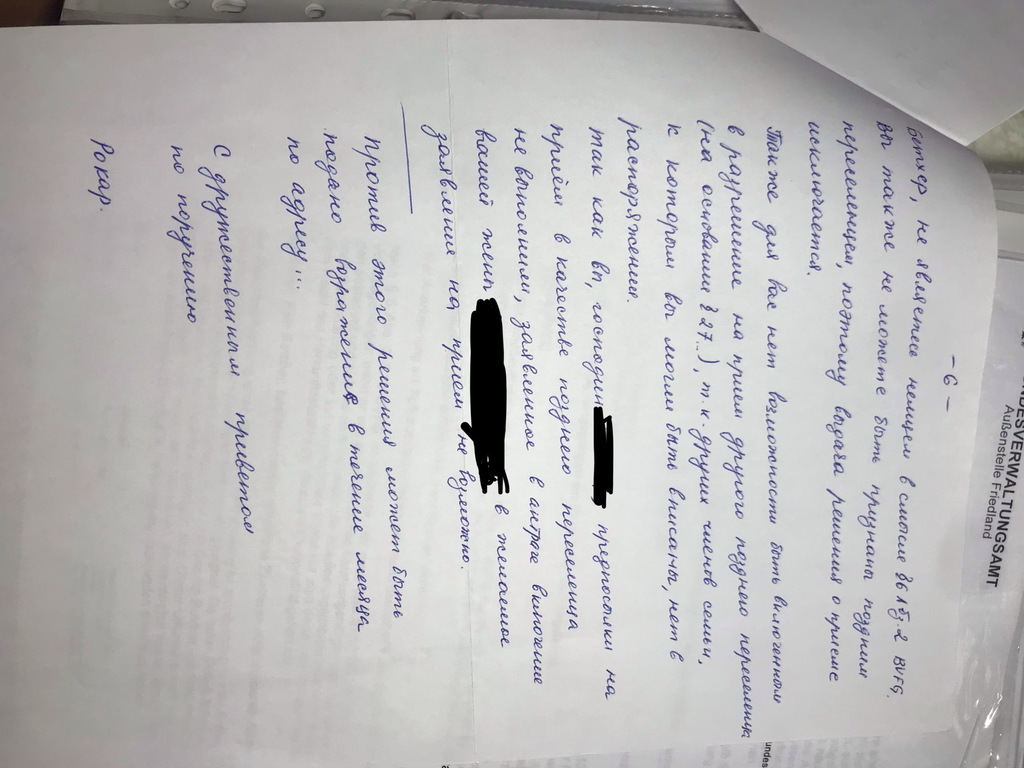 - 6 -
бетхер, не являетесь немцем в смысле §6 1 2 BVFG.
Вы также не можете быть признаны поздним
переселенцем, поэтому выдача решения о приёме
исключается.
Также для вас нет возможности быть включённым
в разрешение на прием другого позднего переселенца
(на основании § 27..), т.к. других членов семьи,
к которым вы могли быть вписаны, нет в
распоряжении.
так как вы, господин предпосылки на
приём в качестве позднего переселенца
не выполнили, заявленное в антраге включение
вашей жены в желаемое
заявления на прием не возможно.
Против этого решения может быть
подано возражение в течение месяца
по адресу...
С дружественным приветом
по поручению
Рокар.
DESVERWALTUNGSAMT
Außenstelle Friedland
undes